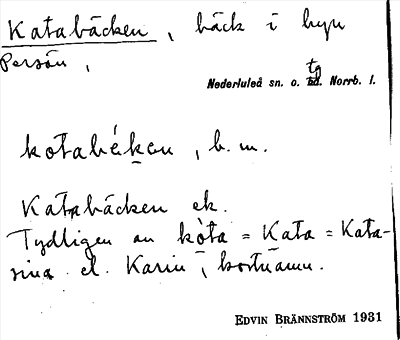 Katabäcken, bäck i byn
Persön,
Nederluleå sn. o. tg Norrb. l.
kotabékan, b. m.
Katabäcken ek.
Tydligen av kòta = Kata = Kata-
rina el. Karin, kortnamn.
EDVIN BRÄNNSTRÖM 1931